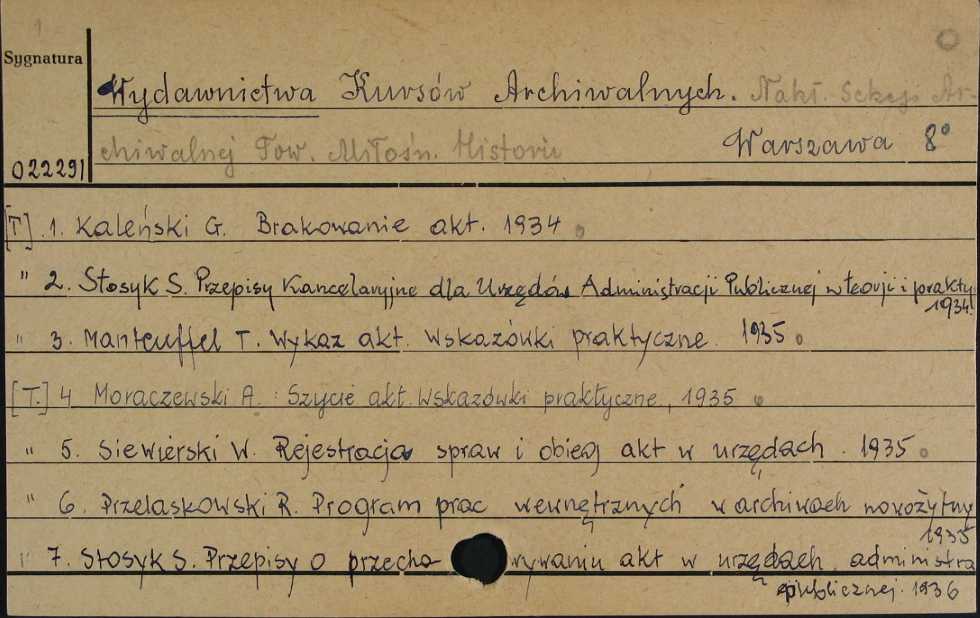 1
Sygnatura
Wydawnictwa Kursów Archiwalnych. Nakł. Sekcji Ar-
chiwalnej Tow. Miłośn. Historii Warszawa 8°
022291
[T] .1. Kaleński G. Brakowanie akt. 1934
" 2. Stosyk S. Przepisy Kancelaryjne dla Urzędów Administracji Publicznej w teorji i prakty
1934.
" 3. Manteuffel T. Wykaz akt. Wskazówki praktyczne. 1935
[T.] 4 Moraczewski A. : Szycie akt. Wskazówki praktyczne, 1935
" 5. Siewierski W. Rejestracja spraw i obieg akt w urzędach. 1935
" 6. Przelaskowski R. Program prac wewnętrznych w archiwach nowożytny
1935
" 7. Stosyk S. Przepisy o przecho wywaniu akt w urzędach administra
publicznej. 1936